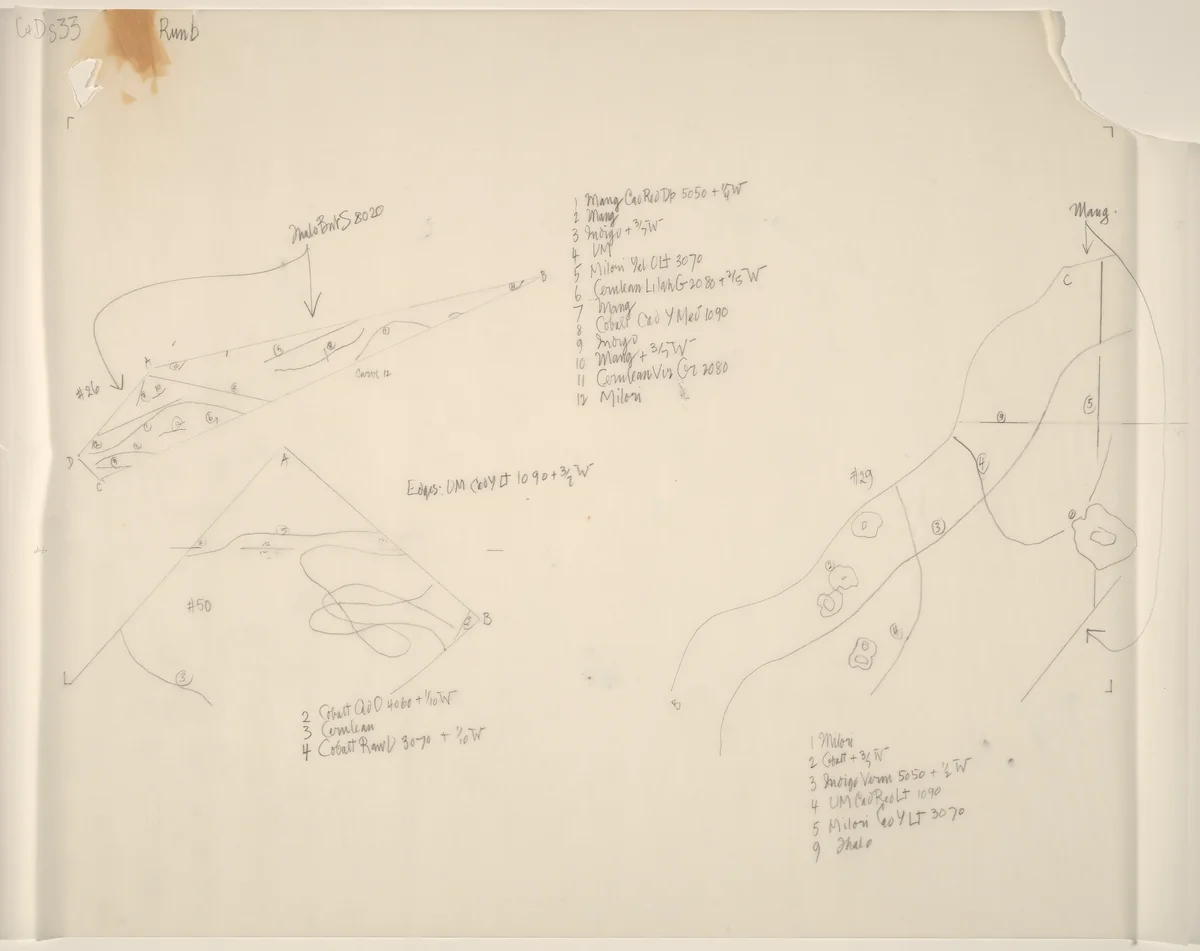 Rumb
Thalo BntS 8020
1 Mang Cad Red Dp 5050 + 1/4 W
2 Mang
3 Indigo + 3/5 W
4 UM
5 Milori Yel O Lt 3070
6 Cerulean Lilah G 2080 + 2/5 W
7 Mang
8 Cobalt Cad Y Med 1090
9 Indigo
10 Mang + 3/5 W
11 Cerulean Vir Gr 2080
12 Milori
Mang.
#26
A
B
C
D
Edges: UM Cad Y Lt 1090 + 3/2 W
#50
A
B
2 Cobalt Cad O 4060 + 1/10 W
3 Cerulean
4 Cobalt Raw U 3070 + 1/10 W
#29
C
B
1 Milori
2 Cobalt + 3/5 W
3 Indigo Verm 5050 + 1/2 W
4 UM Cad Red Lt 1090
5 Milori Cad Y Lt 3070
9 Thalo